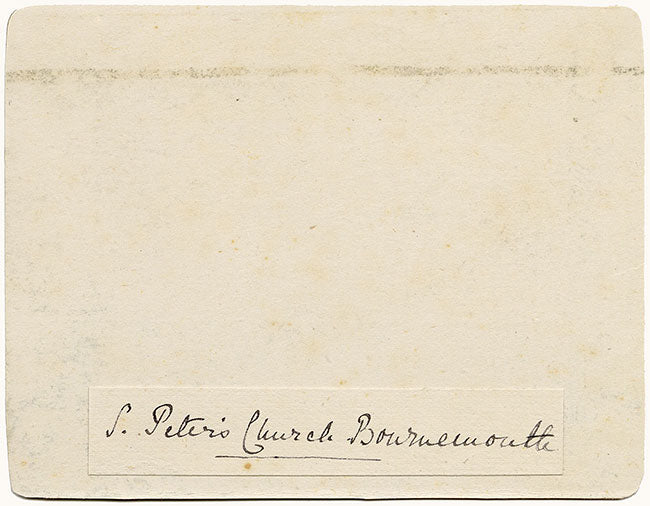 S. Peter's Church Bournemouth